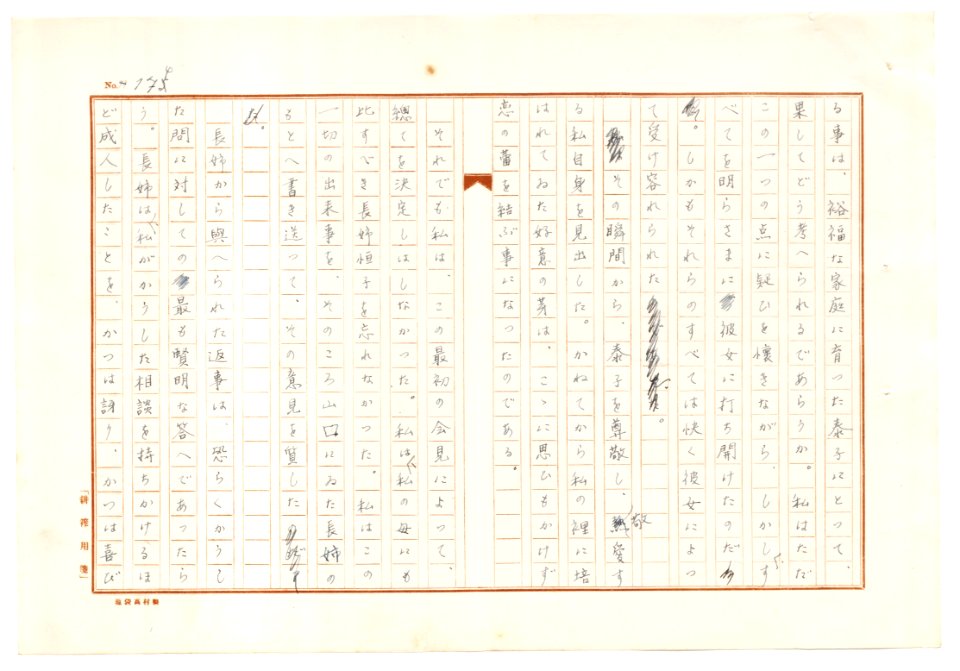 No. 174
る事は、裕福な家庭に育つた泰子にとつて、
果してどう考へられるであらうか。私はただ
この一つの点に疑ひを懐きながら、しかしす
べてを明らさまに彼女に打ち開けたのだ
。しかもそれらのすべては快く彼女によつ
て受け容れられた。
その瞬間から、泰子を尊敬し、敬愛す
る私自身を見出した。かねてから私の裡に培
はれてゐた好意の芽は、こゝに思ひもかけず
恋の蕾を結ぶ事になつたのである。
それでも私は、この最初の会見によつて、
總てを決定しはしなかつた。私は私の母にも
比すべき長姉恒子を忘れなかつた。私はこの
一切の出来事を、そのころ山口にゐた長姉の
もとへ書き送つて、その意見を質した
。
長姉から與へられた返事は、恐らくかうし
た問に対しての最も賢明な答へであつたら
う。長姉は私がかうした相談を持ちかけるほ
ど成人したことを、かつは訝り、かつは喜び
「耕筰用箋」